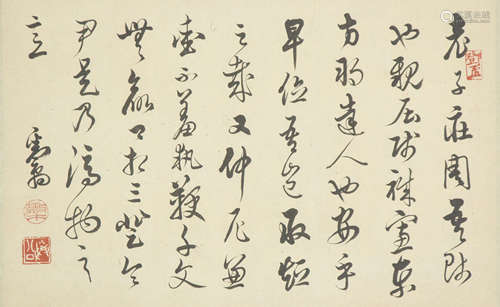 老子莊周吾師
也親居賤職東
方朔達人也安乎
卑位吾豈敢短
之哉又仲尼兼
愛不羞執鞭子文
無欲卿相三登令
尹是乃濟物之
意